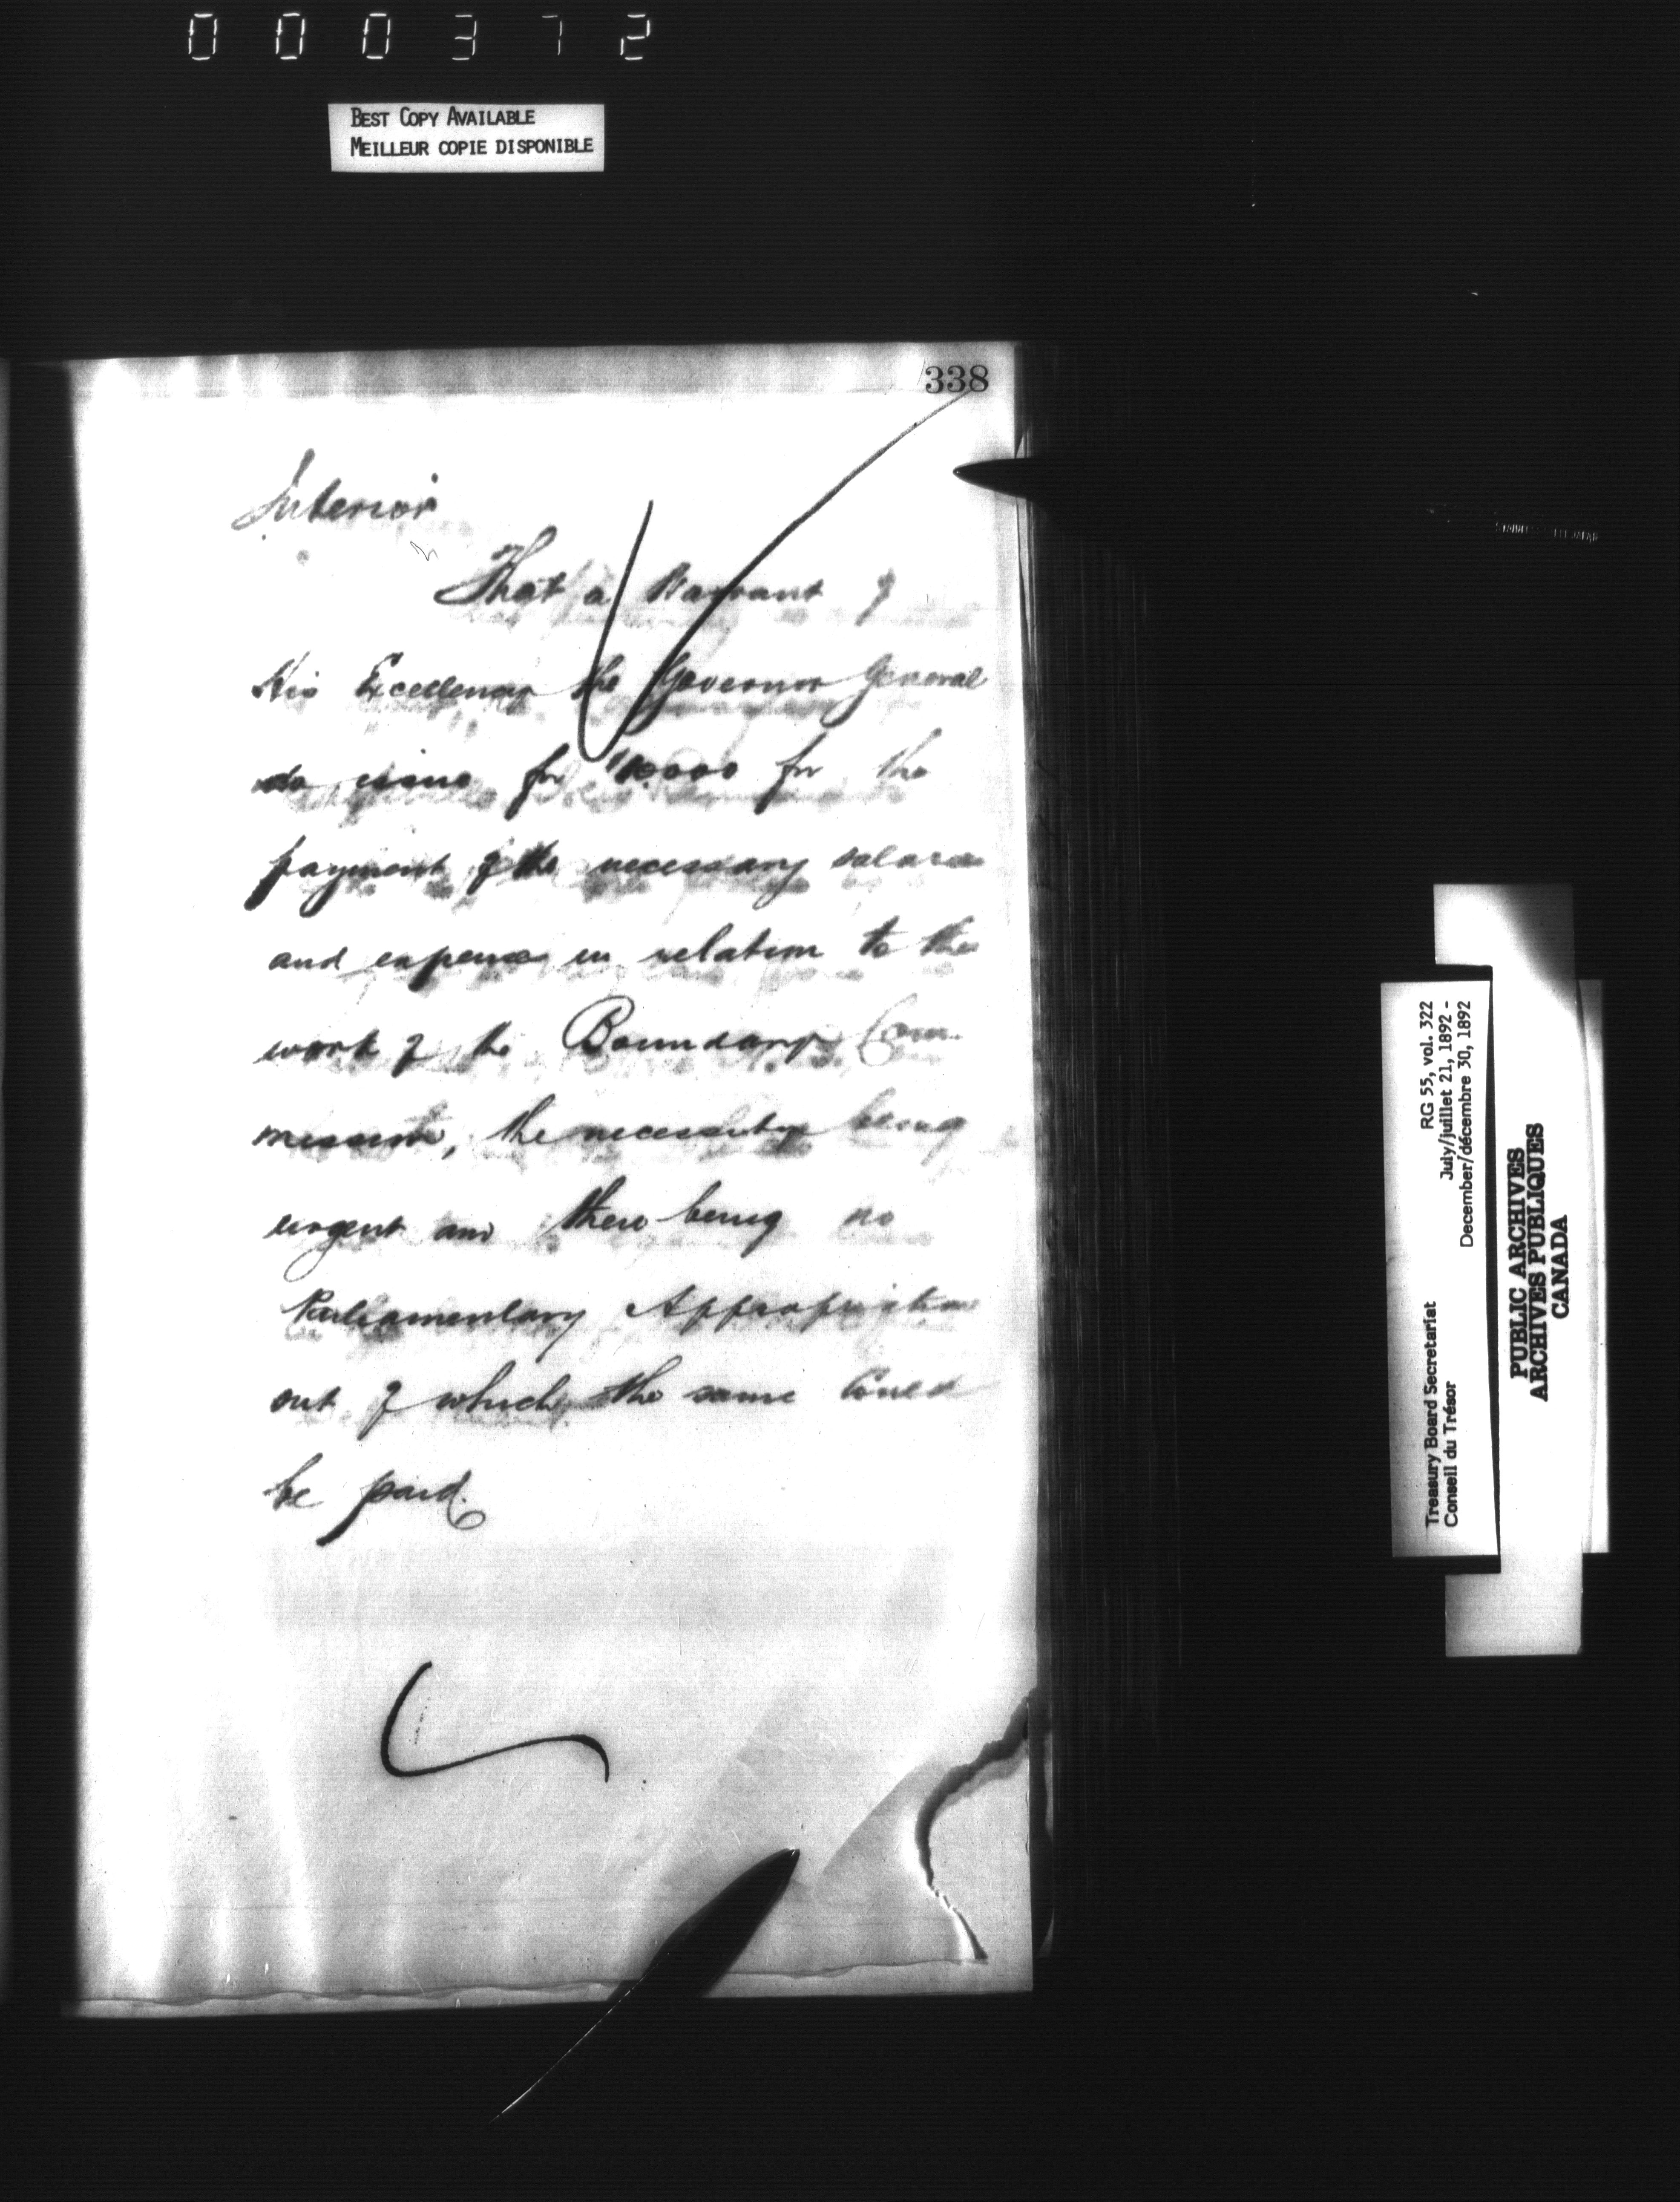 000372
BEST COPY AVAILABLE
MEILLEUR COPIE DISPONIBLE
338
Interior
That a Warrant of
His Excellency the Governor General
do issue for $10.000 for the
payment of the necessary salaries
and expenses in relation to the
work of the Boundary Com-
mission, the necessity being
urgent and there being no
Parliamentary Appropriation
out of which the same could
be paid.
RG 55, vol. 322
July/juillet 21, 1892 -
December/décembre 30, 1892
Treasury Board Secretariat
Conseil du Trésor
PUBLIC ARCHIVES
ARCHIVES PUBLIQUES
CANADA